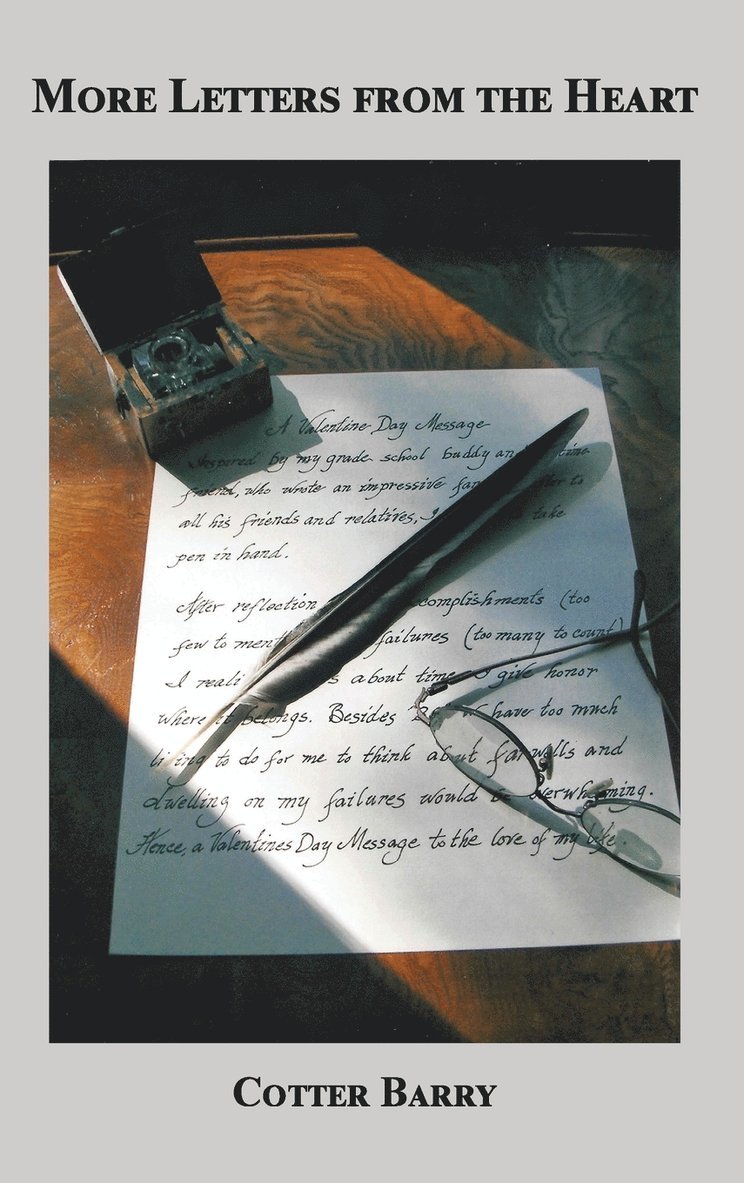 MORE LETTERS FROM THE HEART
A Valentine Day Message
Inspired by my grade school buddy an
friend, who wrote an impressive to
all his friends and relatives, I take
pen in hand.
After reflection complishments (too
few to ment failures (too many to count)
I reali s about time I give honor
where it belongs. Besides we have too much
living to do for me to think about farewells and
dwelling on my failures would be overwhelming.
Hence, a Valentines Day Message to the love of my life.
COTTER BARRY